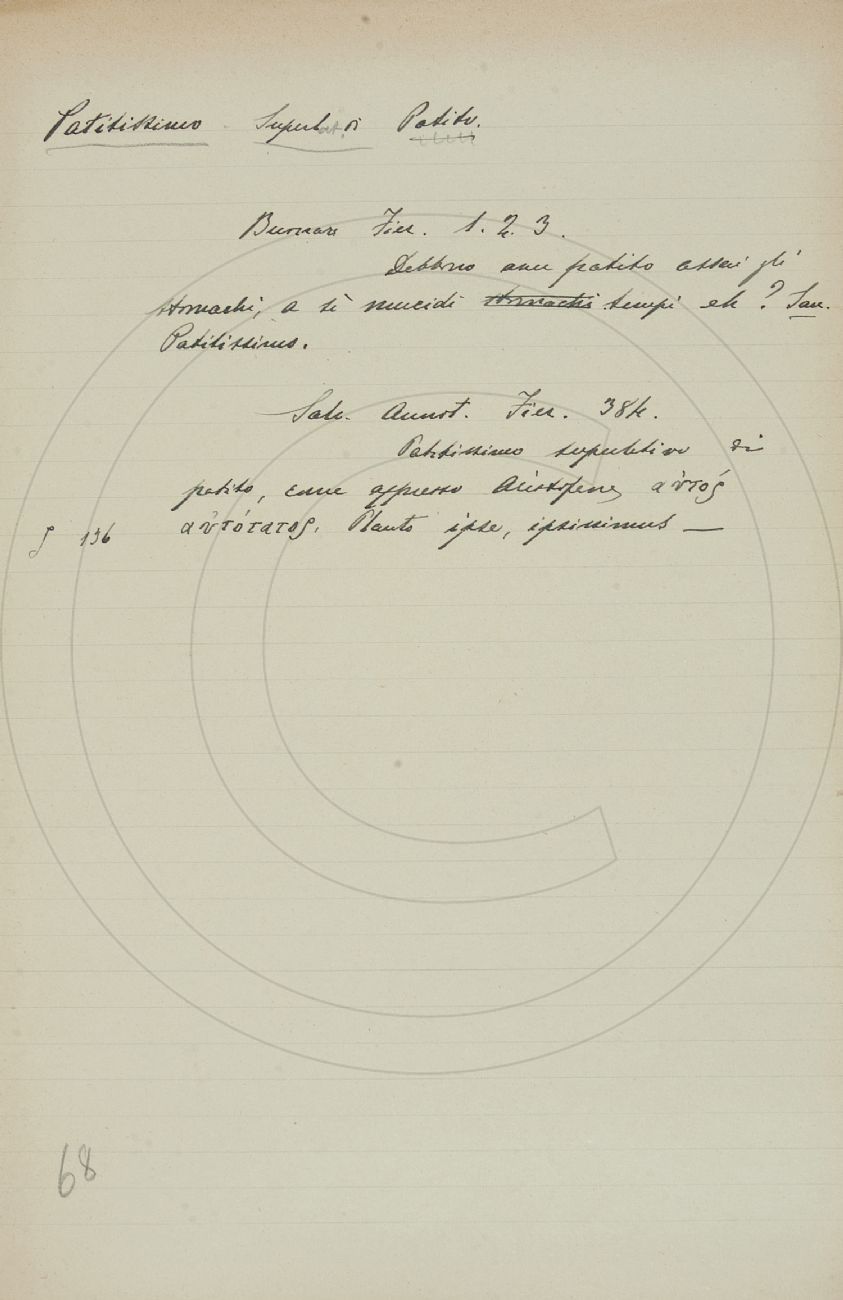 Patitissimo Superlat. di Patito.
Buonarr. Fier. 1. 2. 3.
Debbono aver patito assai gli
stomachi, a sì mucidi stomachi tempi eh? San.
Patitissimo.
Salv. Annot. Fier. 384.
Patitissimo superlativo di
patito, come appresso Aristofane, αὐτός
αὐτότατος. Plauto ipse, ipsissimus —
§ 136
68